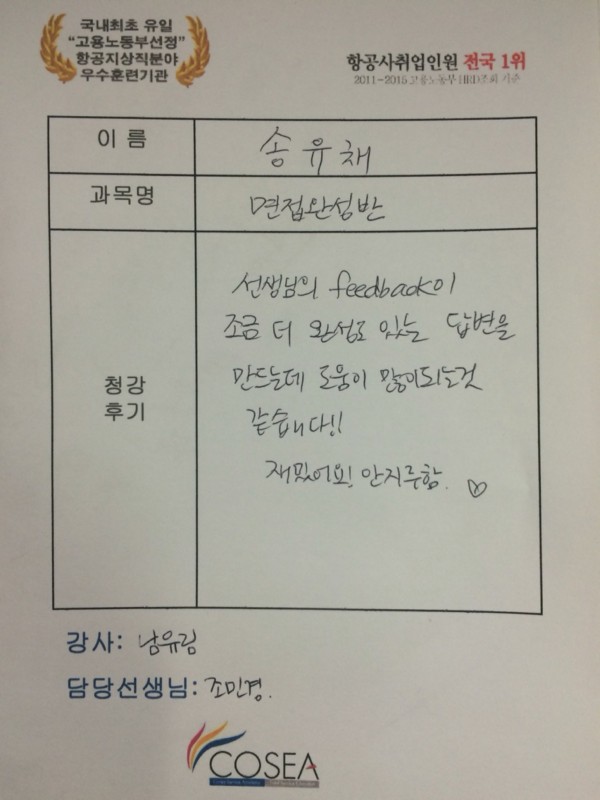 국내최초 유일
"고용노동부선정"
항공지상직분야
우수훈련기관
항공사취업인원 전국 1위
2011~2015고용노동부 HRD조회 기준
이 름
송유채
과목명
면접완성반
청강
후기
선생님의 feedback이
조금 더 완성도 있는 답변을
만드는데 도움이 많이되는것
같습니다!!
재밌어요! 안지루함. ♡
강사: 남유림
담당선생님: 조민경.
COSEA